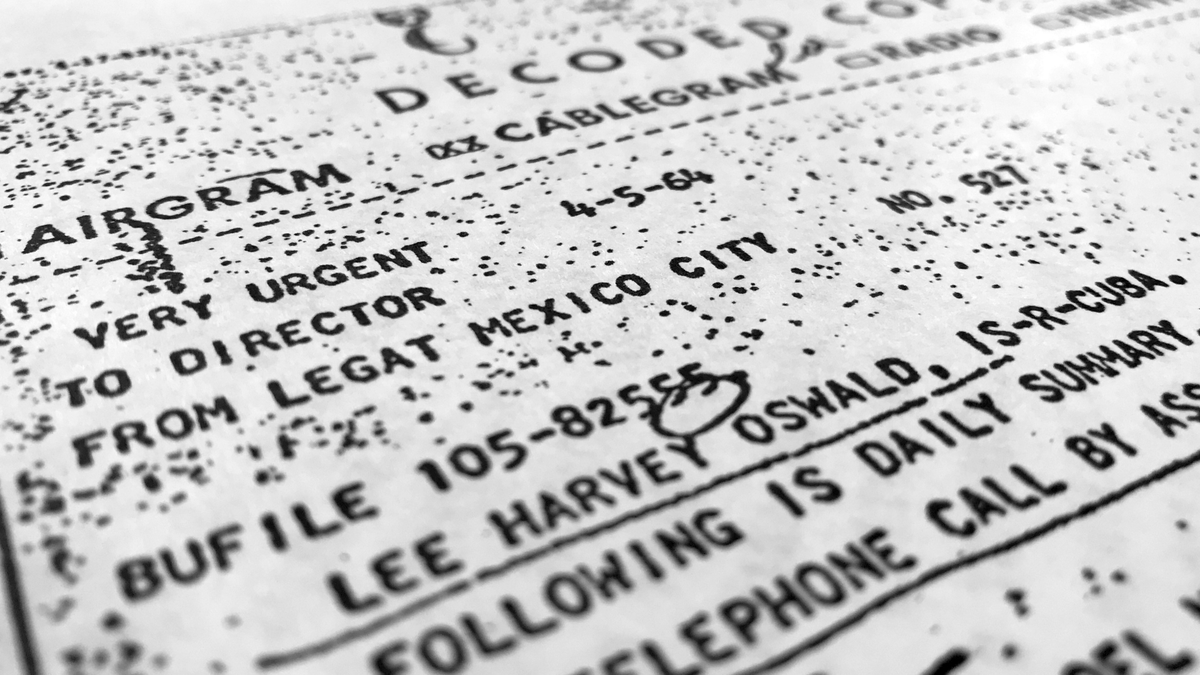 DECODED COP
AIRGRAM xx CABLEGRAM RADIO
4-5-64 NO. 527
VERY URGENT
TO DIRECTOR
FROM LEGAT MEXICO CITY
BUFILE 105-82555
LEE HARVEY OSWALD, IS-R-CUBA.
FOLLOWING IS DAILY SUMMARY
TELEPHONE CALL BY ASS